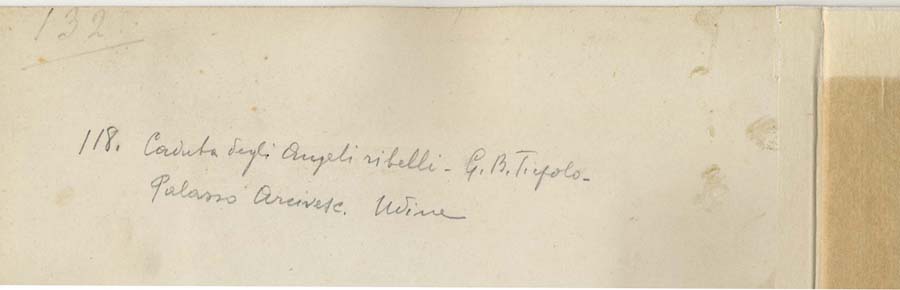 132
118. Caduta degli Angeli ribelli - G. B. Tiepolo -
Palazzo Arcivesc. Udine